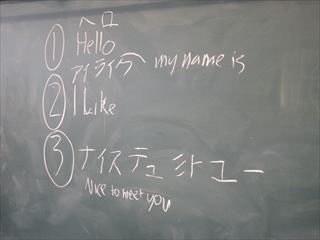 ヘロ
① Hello
アイライク my name is
② I Like
③ ナイステュミトユー
Nice to meet you